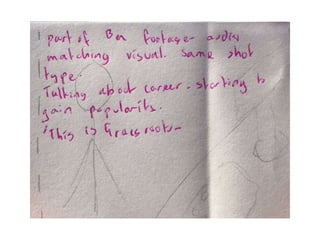 part of Ben footage - audio
matching visual. Same shot
type.
Talking about career - starting to
gain popularity.
"This is Grassroots -